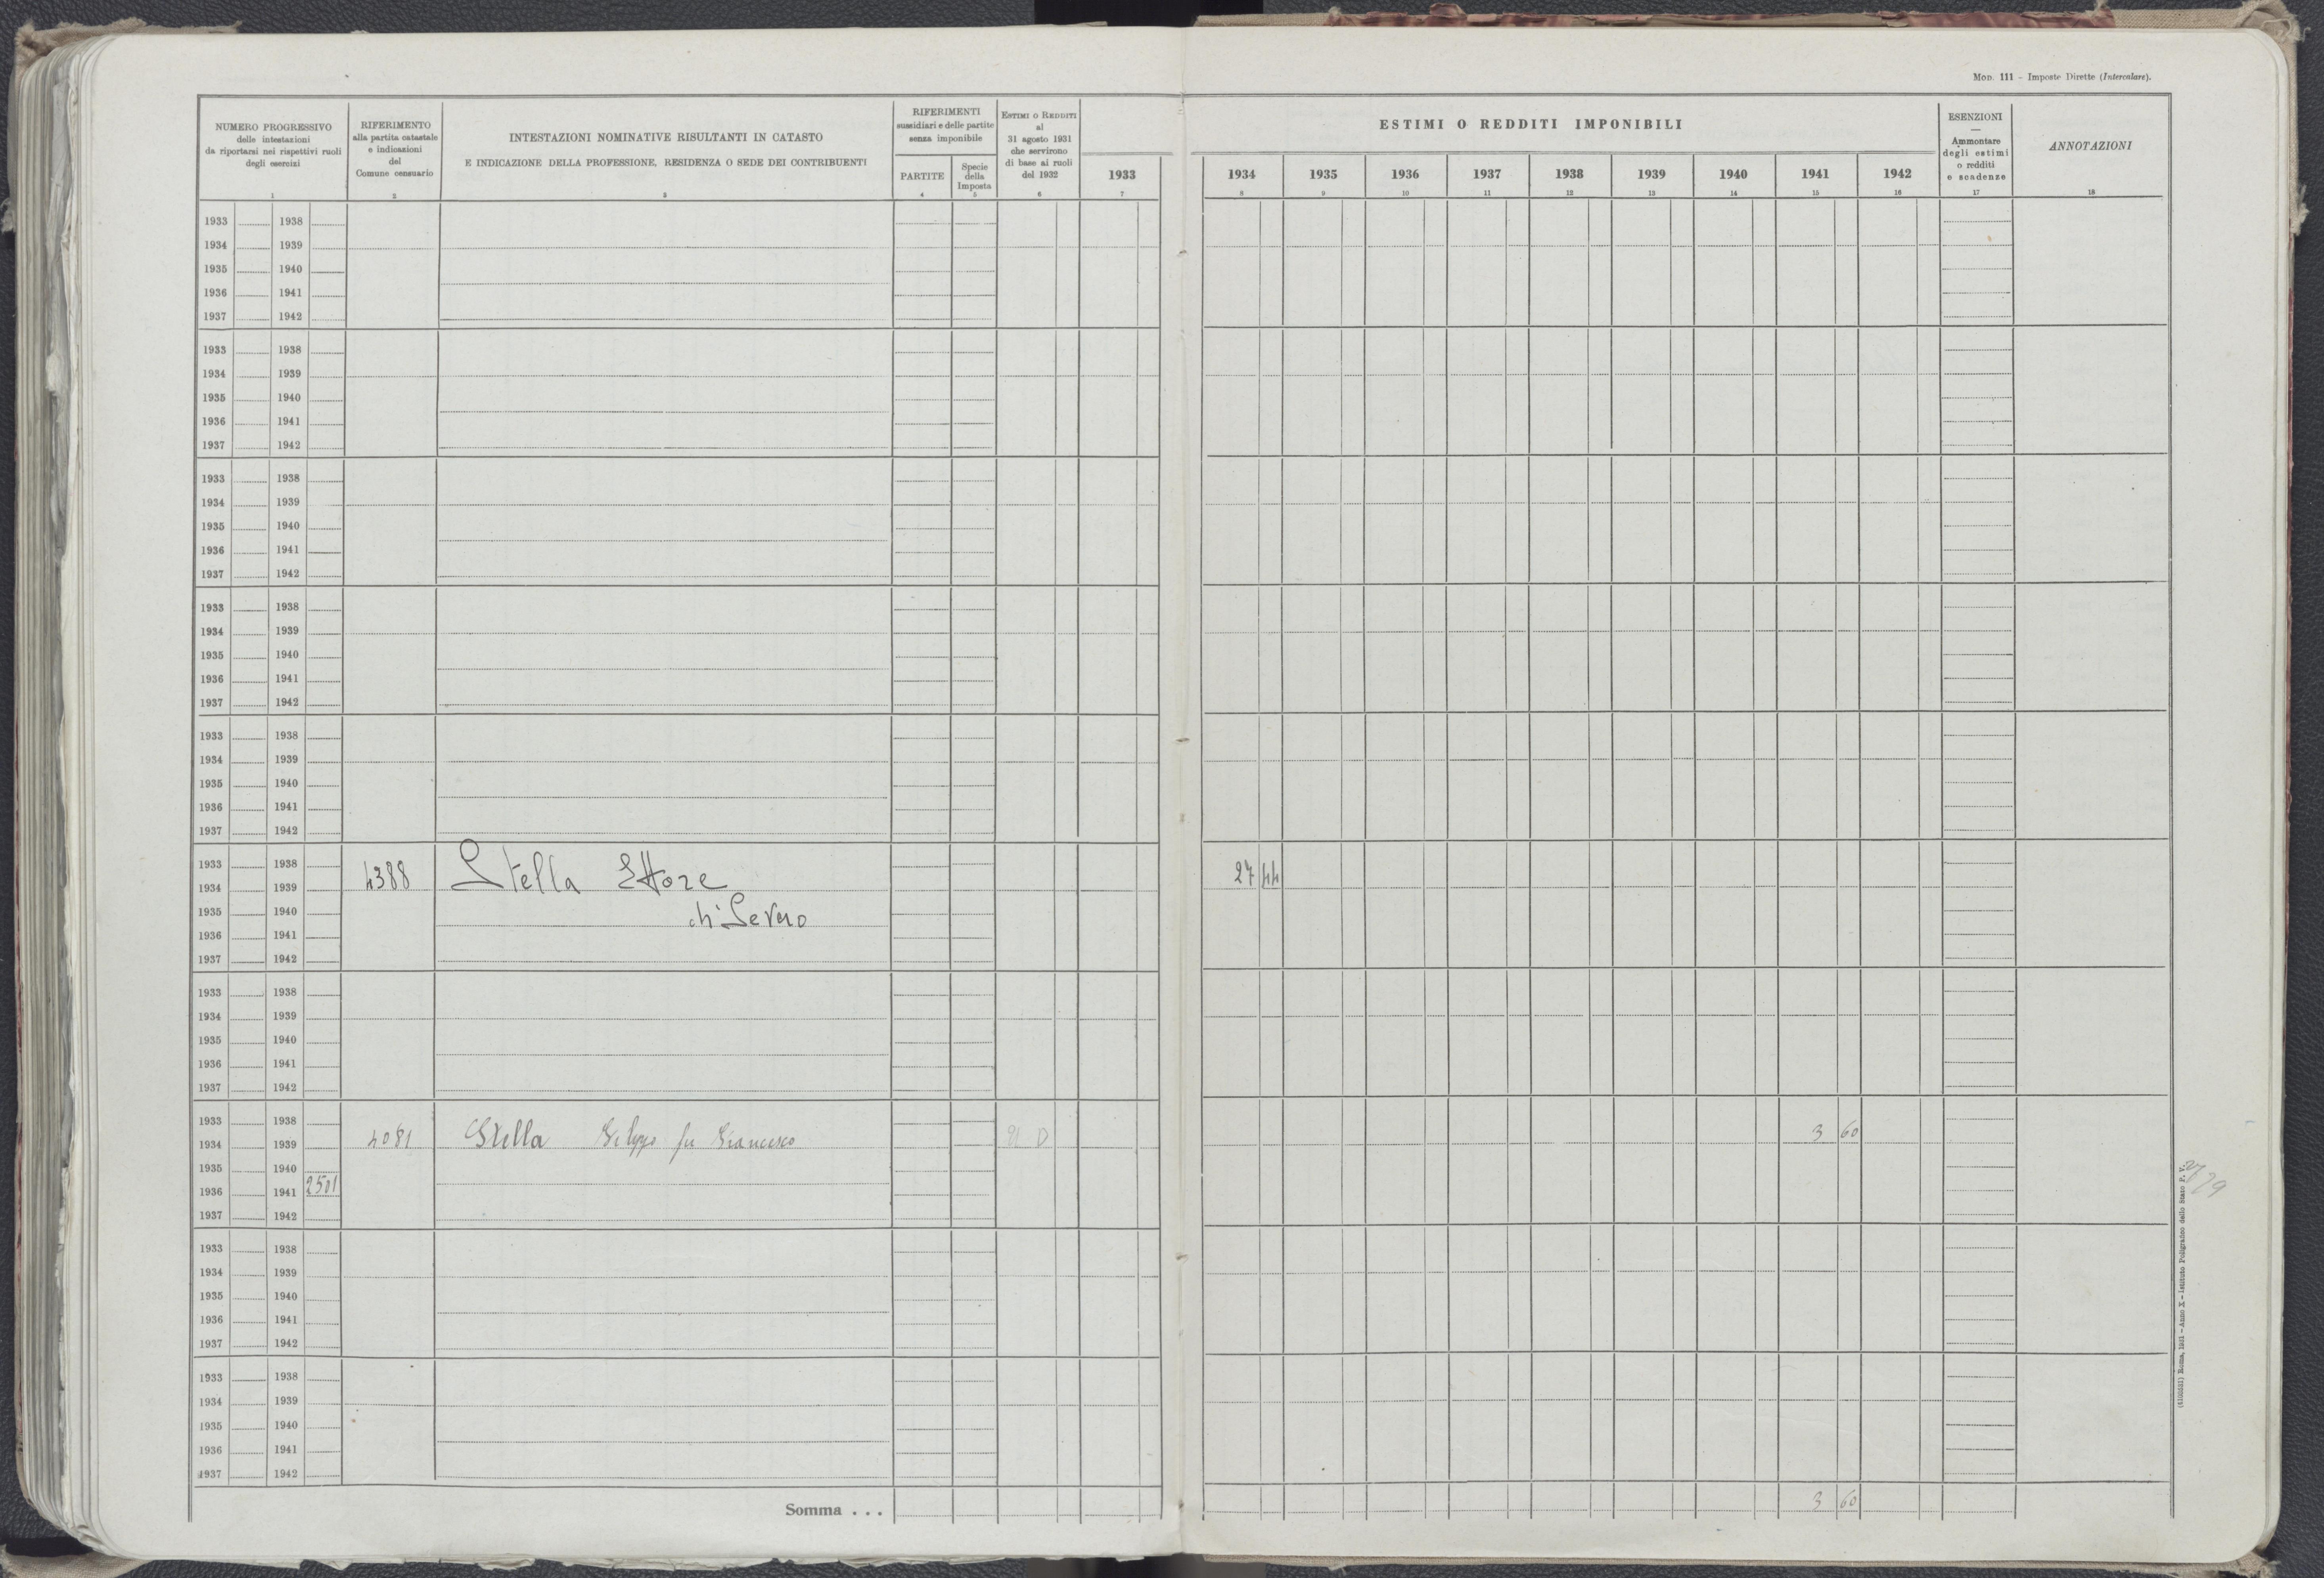 Mod. 111 - Imposte Dirette (Intercalare).
NUMERO PROGRESSIVO
delle intestazioni
da riportarsi nei rispettivi ruoli
degli esercizi
1
RIFERIMENTO
alla partita catastale
e indicazioni
del
Comune censuario
2
INTESTAZIONI NOMINATIVE RISULTANTI IN CATASTO
E INDICAZIONE DELLA PROFESSIONE, RESIDENZA O SEDE DEI CONTRIBUENTI
3
RIFERIMENTI
sussidiari e delle partite
senza imponibile
PARTITE
4
Specie
della
Imposta
5
Estimi o Redditi
al
31 agosto 1931
che servirono
di base ai ruoli
del 1932
6
1933
7
ESTIMI O REDDITI IMPONIBILI
1934 1935 1936 1937 1938 1939 1940 1941 1942
8 9 10 11 12 13 14 15 16
ESENZIONI
—
Ammontare
degli estimi
o redditi
e scadenze
17
ANNOTAZIONI
18
1933 1938
1934 1939
1935 1940
1936 1941
1937 1942
1933 1938
1934 1939
1935 1940
1936 1941
1937 1942
1933 1938
1934 1939
1935 1940
1936 1941
1937 1942
1933 1938
1934 1939
1935 1940
1936 1941
1937 1942
1933 1938
1934 1939
1935 1940
1936 1941
1937 1942
1933 1938
1934 1939 4388 Stella Ettore 27 44
1935 1940 di Severo
1936 1941
1937 1942
1933 1938
1934 1939
1935 1940
1936 1941
1937 1942
1933 1938
1934 1939 4081 Stella fu Francesco 3 60
1935 1940
1936 1941 2501
1937 1942
1933 1938
1934 1939
1935 1940
1936 1941
1937 1942
1933 1938
1934 1939
1935 1940
1936 1941
1937 1942
Somma . . . 3 60
Roma, 1931 - Anno X - Istituto Poligrafico dello Stato P. V.